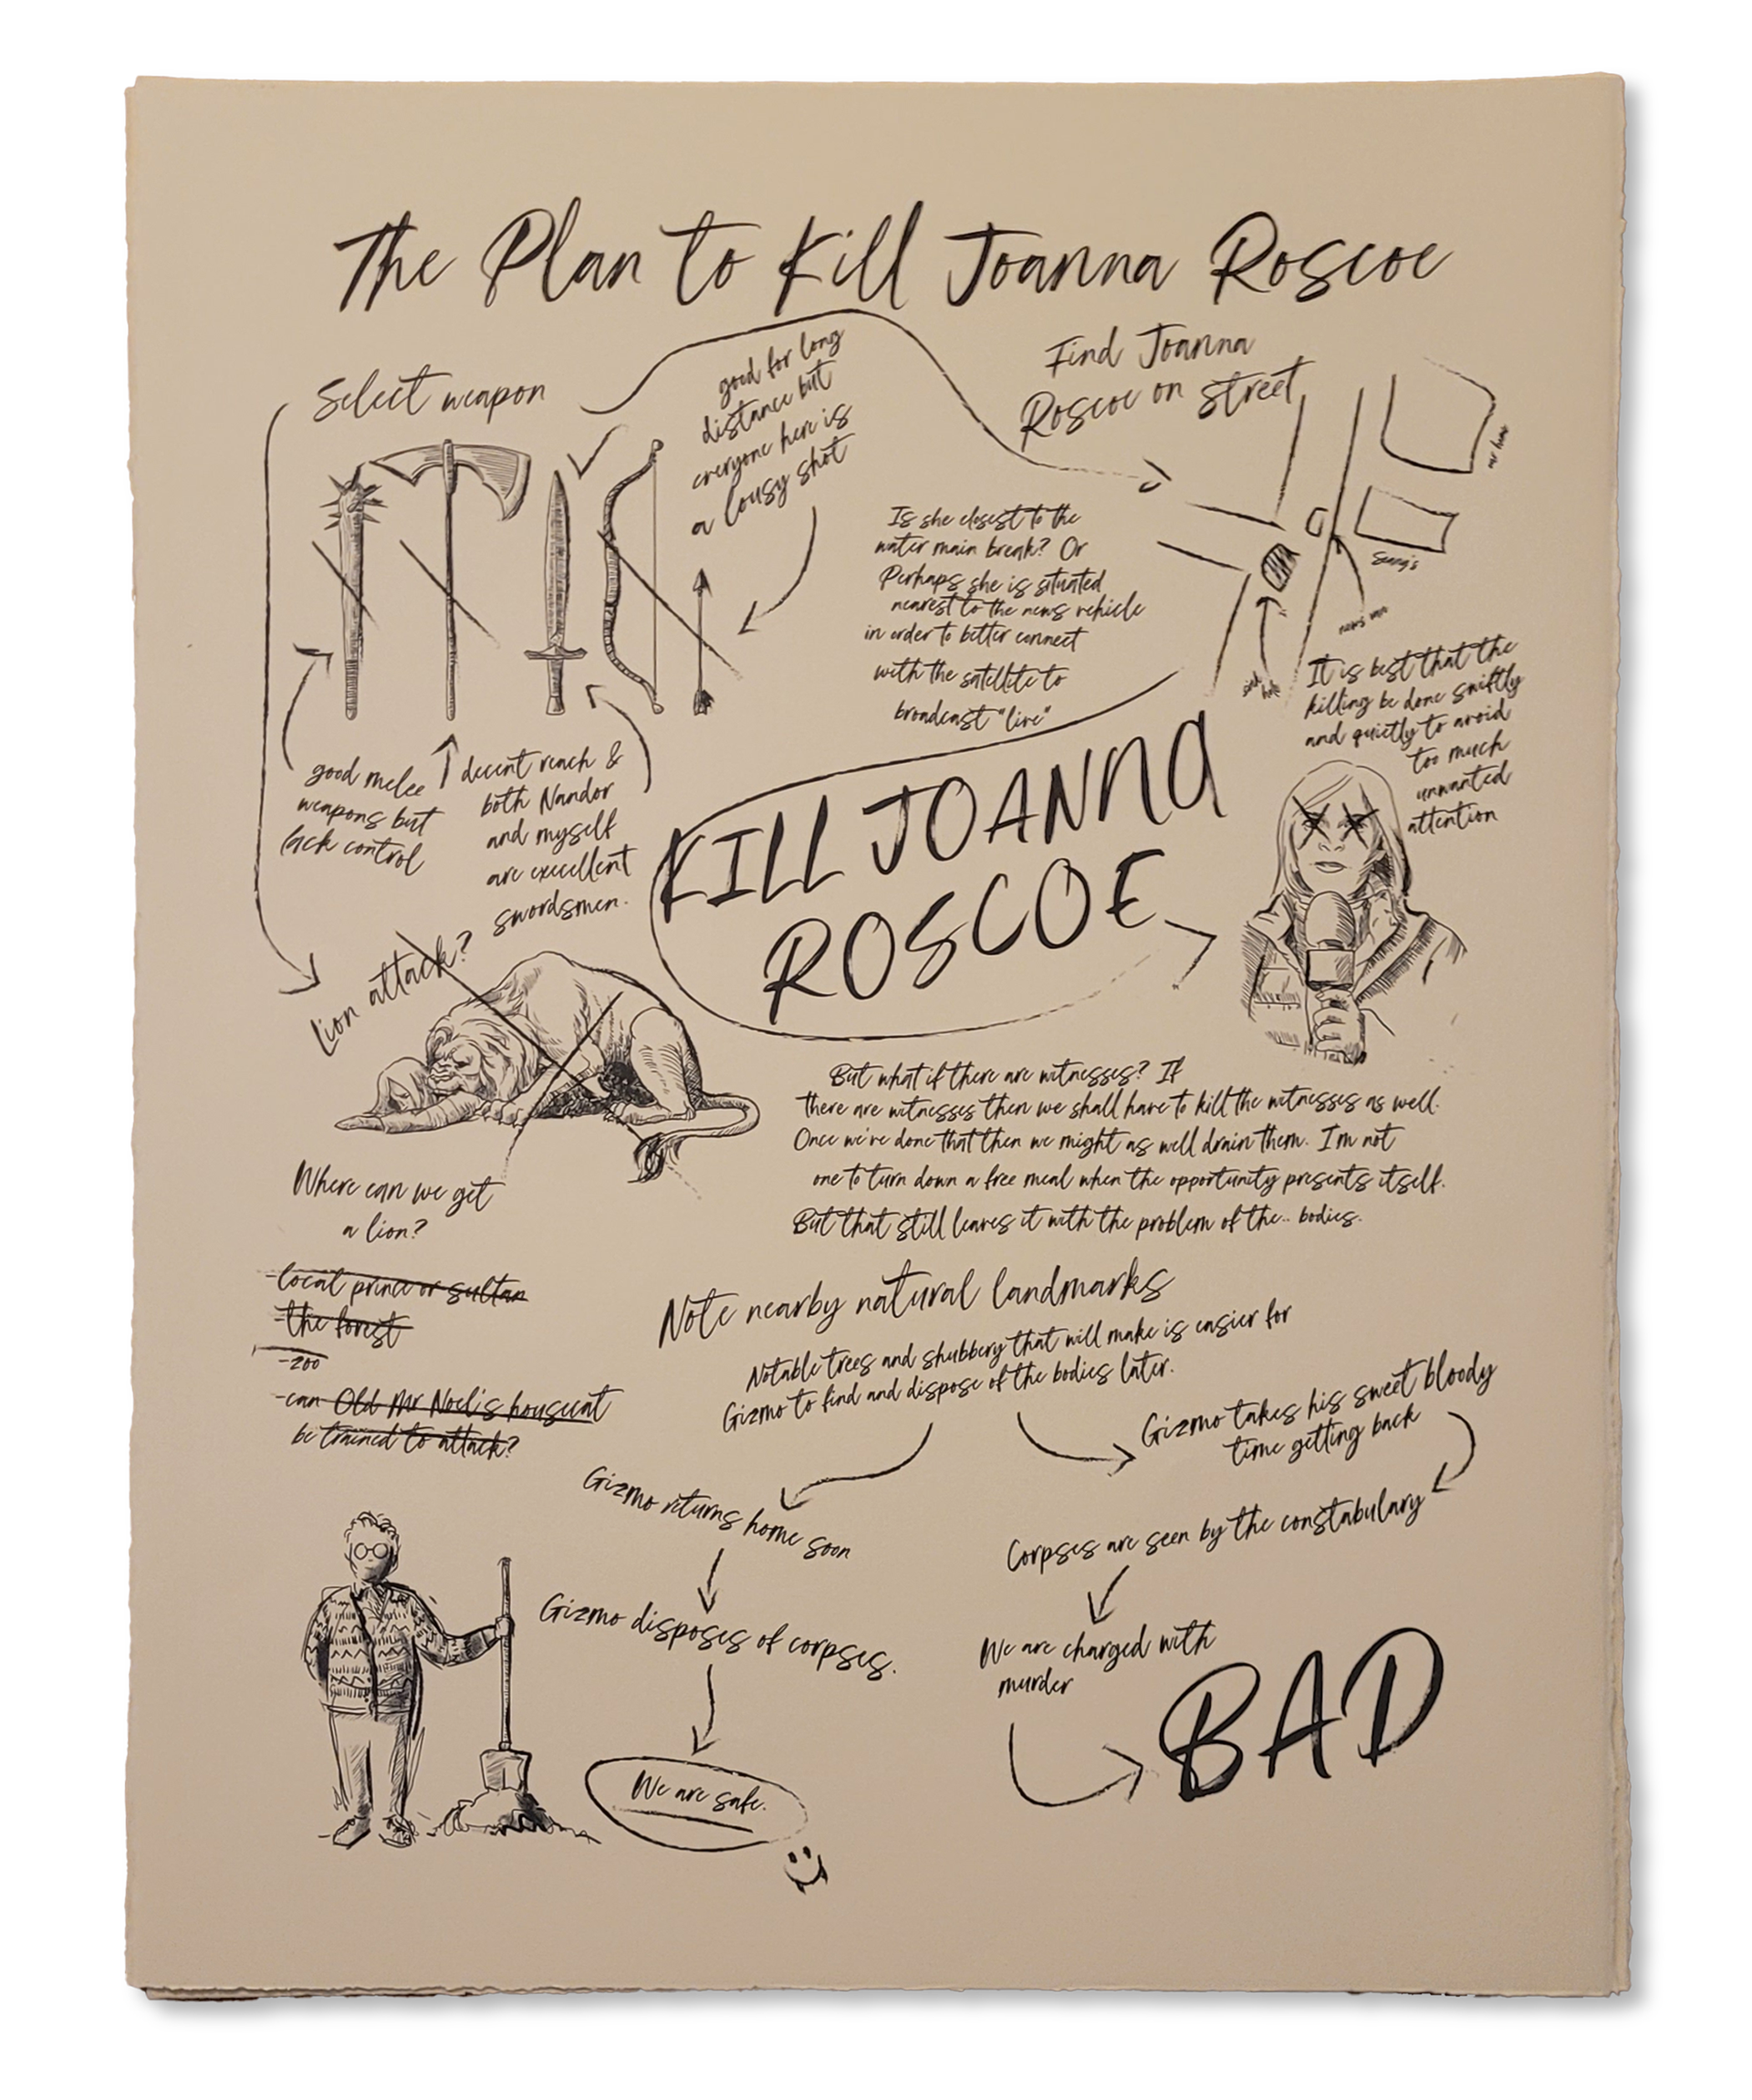 The Plan to Kill Joanna Roscoe
Select weapon
good for long
distance but
everyone here is
a lousy shot
Find Joanna
Roscoe on street
mr home
Sean's
news van
sink hole
Is she closest to the
water main break? Or
Perhaps she is situated
nearest to the news vehicle
in order to better connect
with the satellite to
broadcast "live"
It is best that the
killing be done swiftly
and quietly to avoid
too much
unwanted
attention
good melee
weapons but
lack control
decent reach &
both Nandor
and myself
are excellent
swordsmen.
KILL JOANNA
ROSCOE
Lion attack?
But what if there are witnesses? If
there are witnesses then we shall have to kill the witnesses as well.
Once we're done that then we might as well drain them. I'm not
one to turn down a free meal when the opportunity presents itself.
But that still leaves it with the problem of the.. bodies.
Where can we get
a lion?
-local prince or sultan
-the forest
-zoo
-can Old Mr Noel's housecat
be trained to attack?
Note nearby natural landmarks
Notable trees and shubbery that will make is easier for
Gizmo to find and dispose of the bodies later.
Gizmo takes his sweet bloody
time getting back
Gizmo returns home soon
Corpses are seen by the constabulary
Gizmo disposes of corpses.
We are charged with
murder
BAD
We are safe.